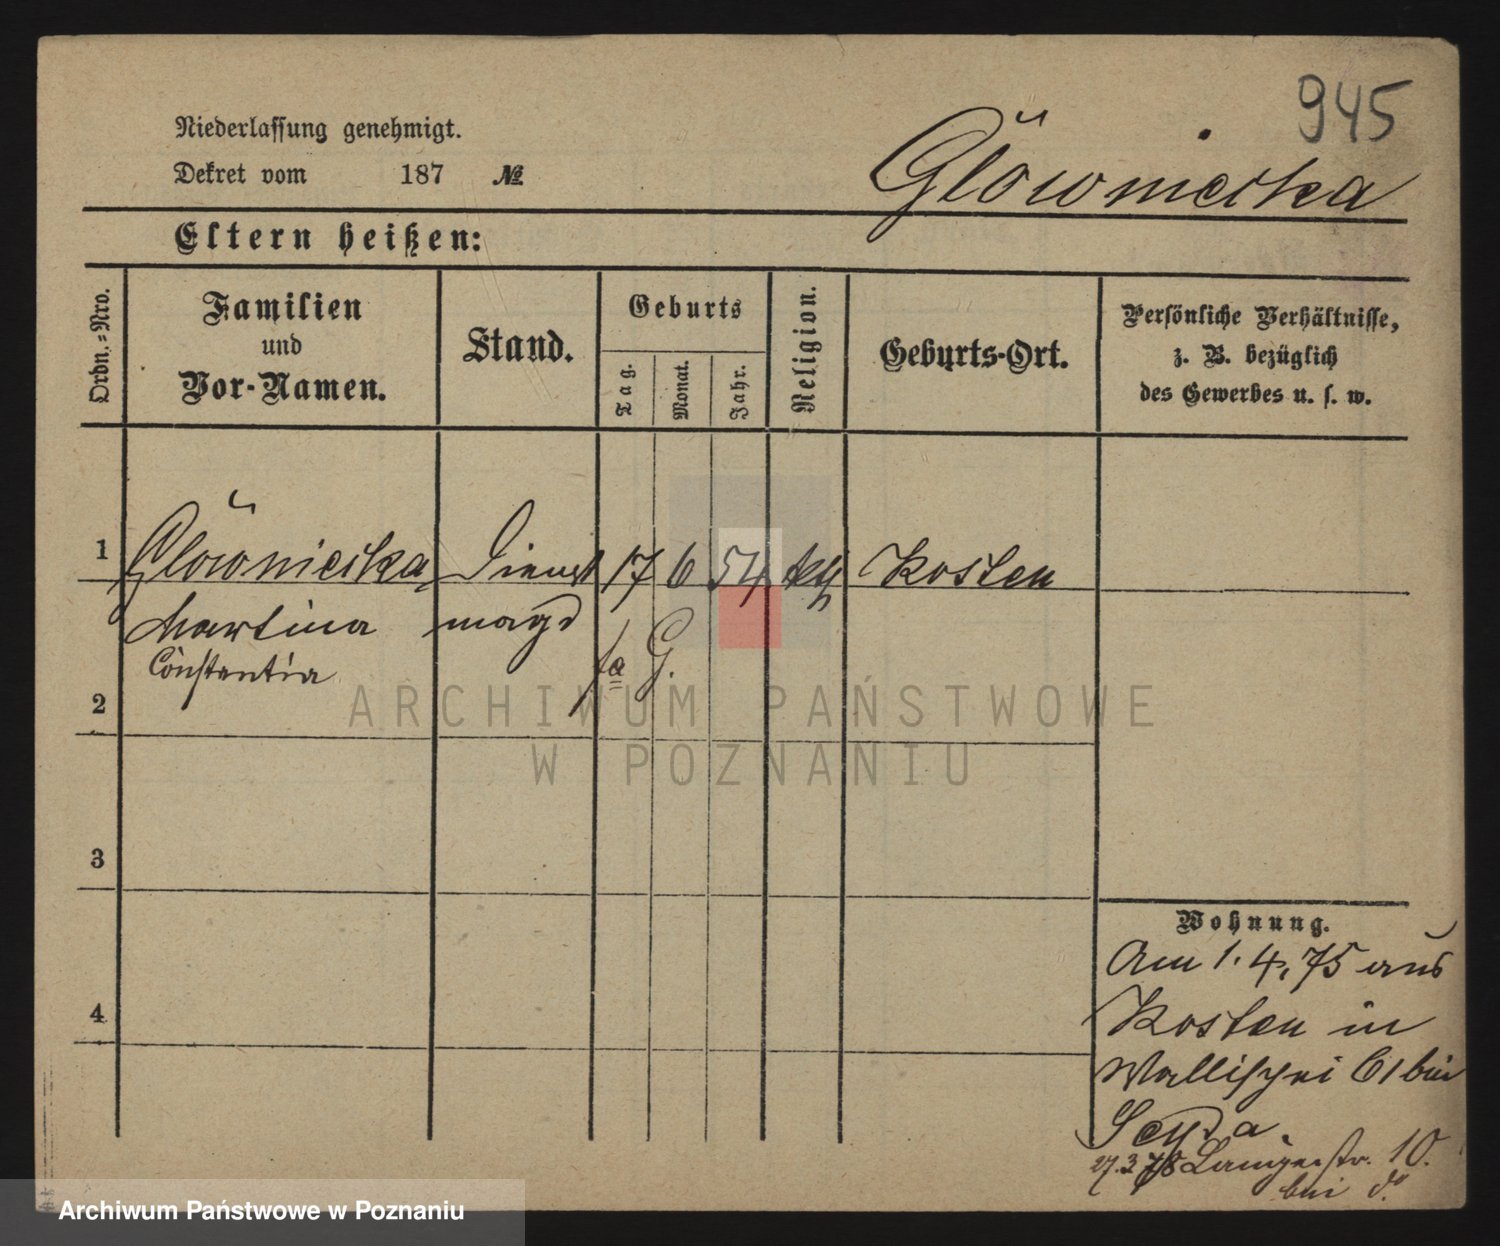 945
Niederlassung genehmigt.
Dekret vom 187 №
Glöwnicka
Eltern heißen:
Ordn.-Nro.
Familien
und
Vor-Namen.
Stand.
Geburts
Tag.
Monat.
Jahr.
Religion.
Geburts-Ort.
Persönliche Verhältnisse,
z. B. bezüglich
des Gewerbes u. s. w.
1 Glöwnicka Dienst 17 6 54 kth Kosten
Martina magd
Constantia fa G.
2
ARCHIWUM PAŃSTWOWE
W POZNANIU
3
Wohnung.
Am 1.4.75 aus
4 Kosten in
Wallischei 61 bei
Seyda
27.3.78 str. 10.
bei
Archiwum Państwowe w Poznaniu